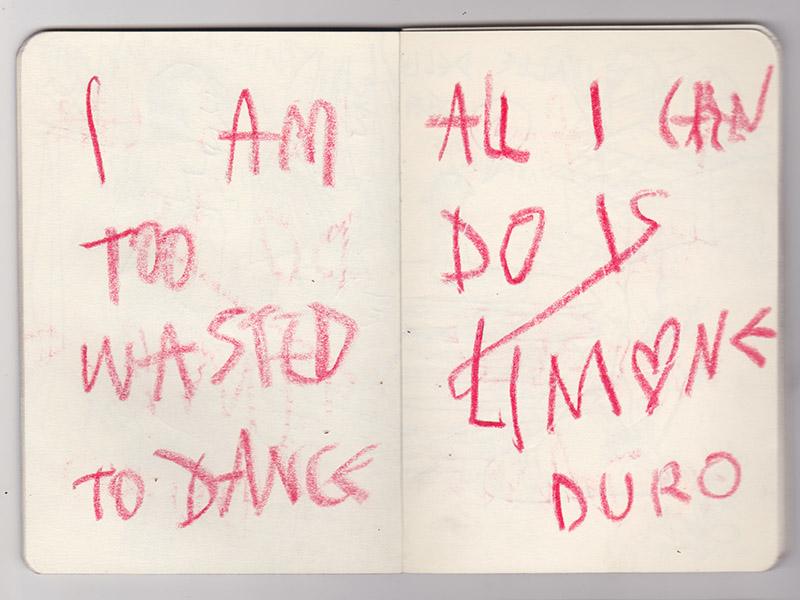 I AM
TOO
WASTED
TO DANCE
ALL I CAN
DO IS
LIM♥NE
DURO